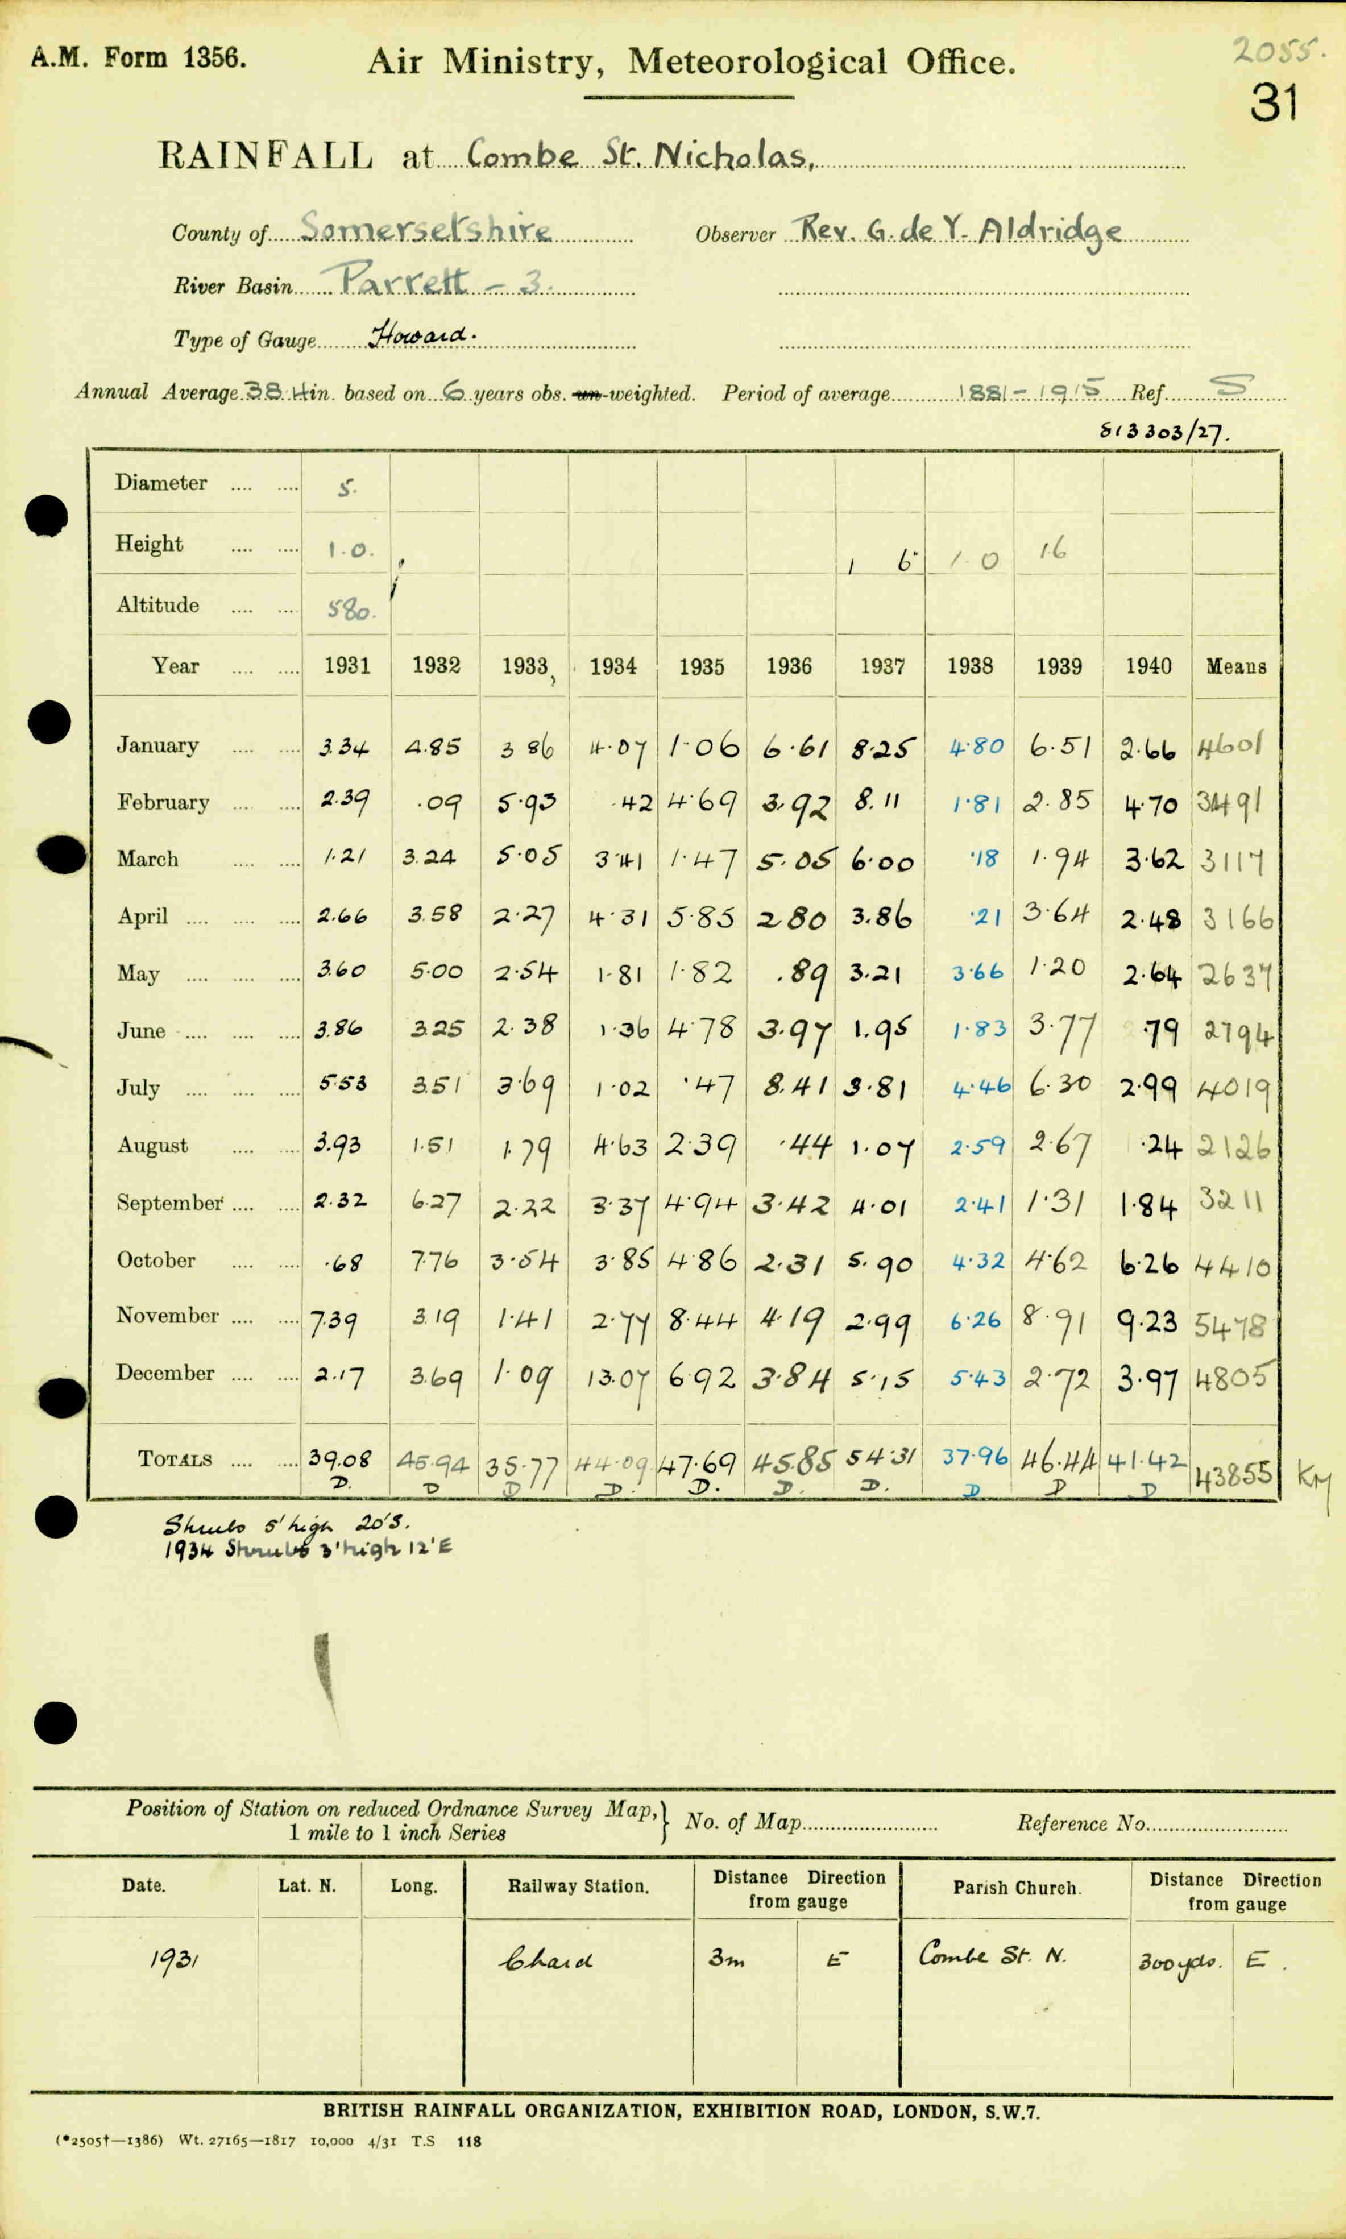 2055.
A.M. Form 1356. Air Ministry, Meteorological Office.
31
RAINFALL at Combe St. Nicholas,
County of Somersetshire Observer Rev. G. de Y. Aldridge
River Basin Parrett - 3.
Type of Gauge Howard.
Annual Average 38.4 in. based on 6 years obs. un-weighted. Period of average 1881-1915 Ref. S
S13303/27.
Diameter .... .... 5.
Height .... .... 1.0. 1 6 1.0 1 6
Altitude .... .... 580.
Year .... .... 1931 1932 1933 1934 1935 1936 1937 1938 1939 1940 Means
January .... .... 3.34 4.85 3 86 4.07 1.06 6.61 8.25 4.80 6.51 2.66 4601
February .... .... 2.39 .09 5.93 .42 4.69 3.92 8.11 1.81 2.85 4.70 3491
March .... .... 1.21 3.24 5.05 3.41 1.47 5.05 6.00 .18 1.94 3.62 3117
April .... .... .... 2.66 3.58 2.27 4.31 5.85 2.80 3.86 .21 3.64 2.48 3166
May .... .... .... 3.60 5.00 2.54 1.81 1.82 .89 3.21 3.66 1.20 2.64 2637
June .... .... .... 3.86 3.25 2.38 1.36 4.78 3.97 1.95 1.83 3.77 .79 2794
July .... .... .... 5.53 3.51 3.69 1.02 .47 8.41 3.81 4.46 6.30 2.99 4019
August .... .... 3.93 1.51 1.79 4.63 2.39 .44 1.07 2.59 2.67 .24 2126
September .... .... 2.32 6.27 2.22 3.37 4.94 3.42 4.01 2.41 1.31 1.84 3211
October .... .... .68 7.76 3.54 3.85 4.86 2.31 5.90 4.32 4.62 6.26 4410
November .... .... 7.39 3.19 1.41 2.77 8.44 4.19 2.99 6.26 8.91 9.23 5478
December .... .... 2.17 3.69 1.09 13.07 6.92 3.84 5.15 5.43 2.72 3.97 4805
TOTALS .... .... 39.08 45.94 35.77 44.09 47.69 45.85 54.31 37.96 46.44 41.42 43855 KM
D. D D D. D. D. D. D D D
Shrubs 5' high 20'S.
1934 Shrubs 3' high 12'E
Position of Station on reduced Ordnance Survey Map, } No. of Map Reference No.
1 mile to 1 inch Series
Date. Lat. N. Long. Railway Station. Distance Direction from gauge Parish Church. Distance Direction from gauge
1931 Chard 3m E Combe St. N. 300 yds. E.
BRITISH RAINFALL ORGANIZATION, EXHIBITION ROAD, LONDON, S.W.7.
(*2505†—1386) Wt. 27165—1817 10,000 4/31 T.S 118